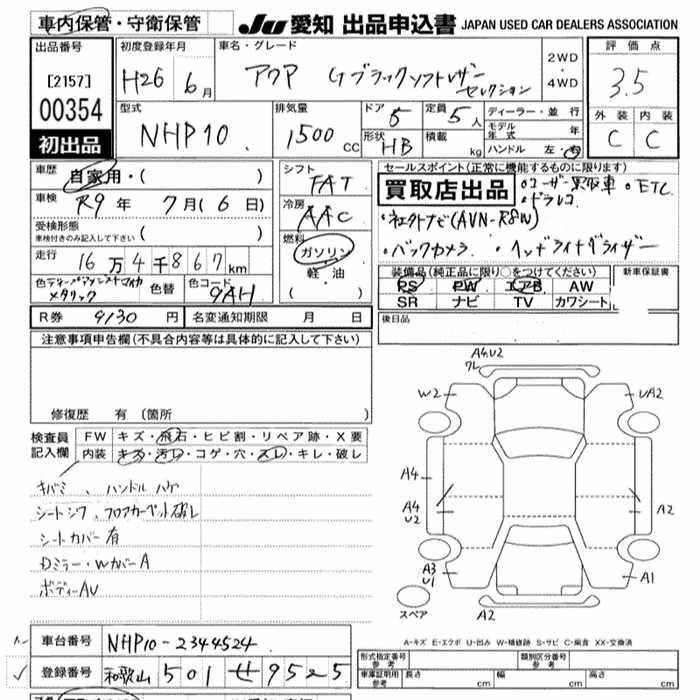 車内保管・守衛保管
JU 愛知 出品申込書 JAPAN USED CAR DEALERS ASSOCIATION
出品番号 初度登録年月 車名・グレード 2WD・4WD 評価点
[2157] H26 6月 アクア Gブラックソフトレザーセレクション 3.5
00354 型式 排気量 ドア 5 定員 5人 ディーラー・並行 外装 内装
初出品 NHP10 1500cc 形状 HB 積載 kg モデル年式 年 C C
ハンドル 左・右
車歴 自家用・( ) シフト FAT セールスポイント(正常に機能するものに限ります)
車検 R9年 7月(6日) 冷房 AAC 買取店出品 ・ユーザー買取車 ・ETC
・ドラレコ
受検形態 車検付きのみ記入して下さい ( ) 燃料 ・社外ナビ(AVN-R8W)
走行 16万4千867km ガソリン・軽油 ( ) ・バックカメラ ・ヘッドライトレベライザー
色 メタリック 色替 色コード 9AH 装備品(純正品に限り○をつけてください) 新車保証書
PS PW エアB AW
SR ナビ TV カワシート
R券 9130円 名変通知期限 月 日 後日品
注意事項申告欄(不具合内容等は具体的に記入して下さい)
修復歴 有 (箇所 )
検査員記入欄 FW キズ・飛石・ヒビ割・リペア跡・X要
内装 キズ・汚レ・コゲ・穴・スレ・キレ・破レ
キバミ、ハンドルハゲ
シートシワ、フロアカーペット破レ
シートカバー有
Dミラー・WカバーA
ボディーAU
A4U2
ワレ
W2 UA2
A4
A4 U2 A2
A3 U1 A1
スペア A2
A-キズ E-エクボ U-凹み W-補修跡 S-サビ C-腐食 XX-交換済
車台番号 NHP10-2344524
登録番号 和歌山 501 せ 9525
形式指定番号 参考 類別区分番号 参考
車庫証明用 参考 長さ cm 幅 cm 高さ cm